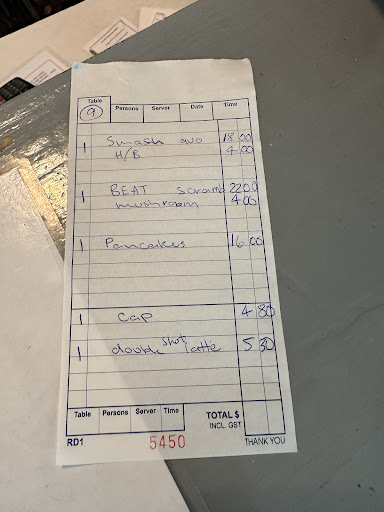 Table Persons Server Date Time
9
1 Smash avo 18 00
H/B 4 00
1 BEAT scramb 22 00
mushroom 4 00
1 Pancakes 16 00
1 cap 4 80
1 double shot latte 5 30
Table Persons Server Time TOTAL $
INCL. GST
RD1 5450 THANK YOU